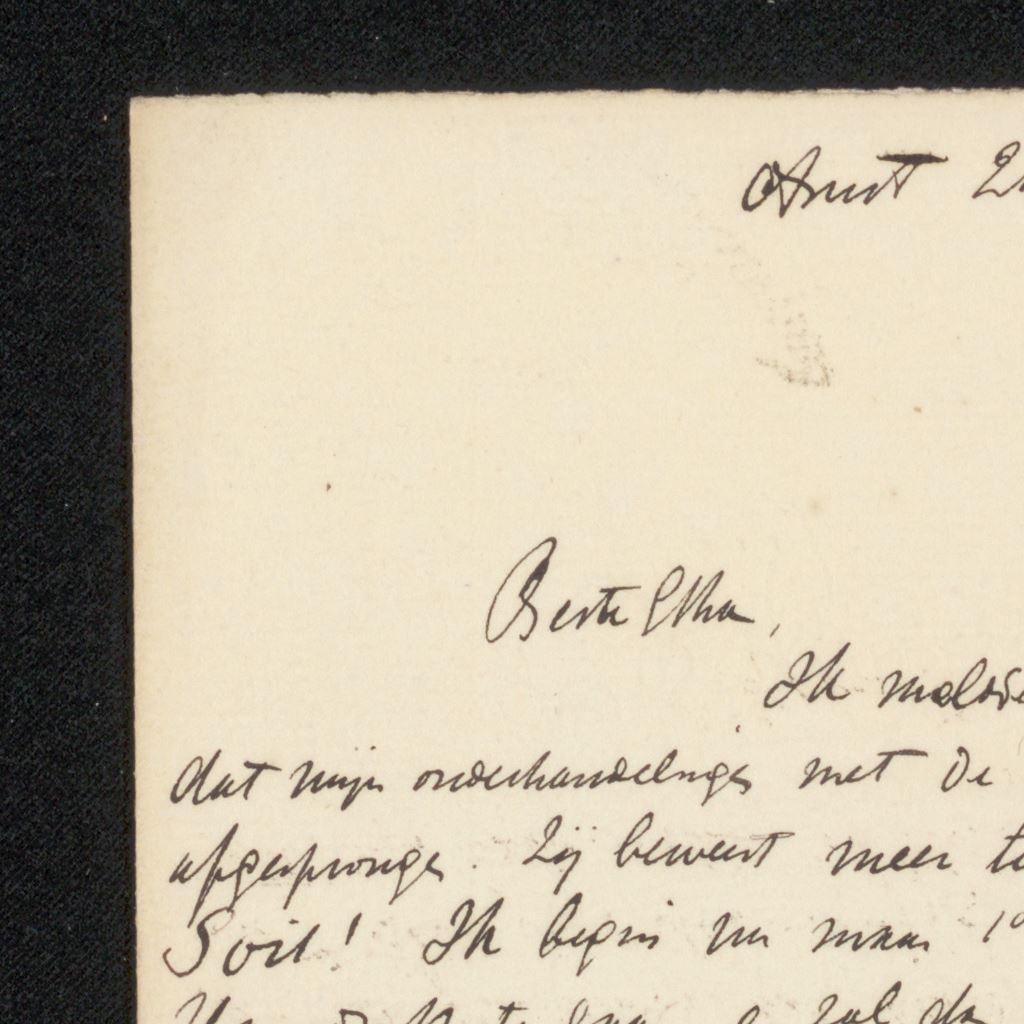 Amst 2
Beste Etha,
Ik melde
dat mijn onderhandelingen met de
afgesprongen. Zij beweert meer te
Soit! Ik begin nu maar 1e